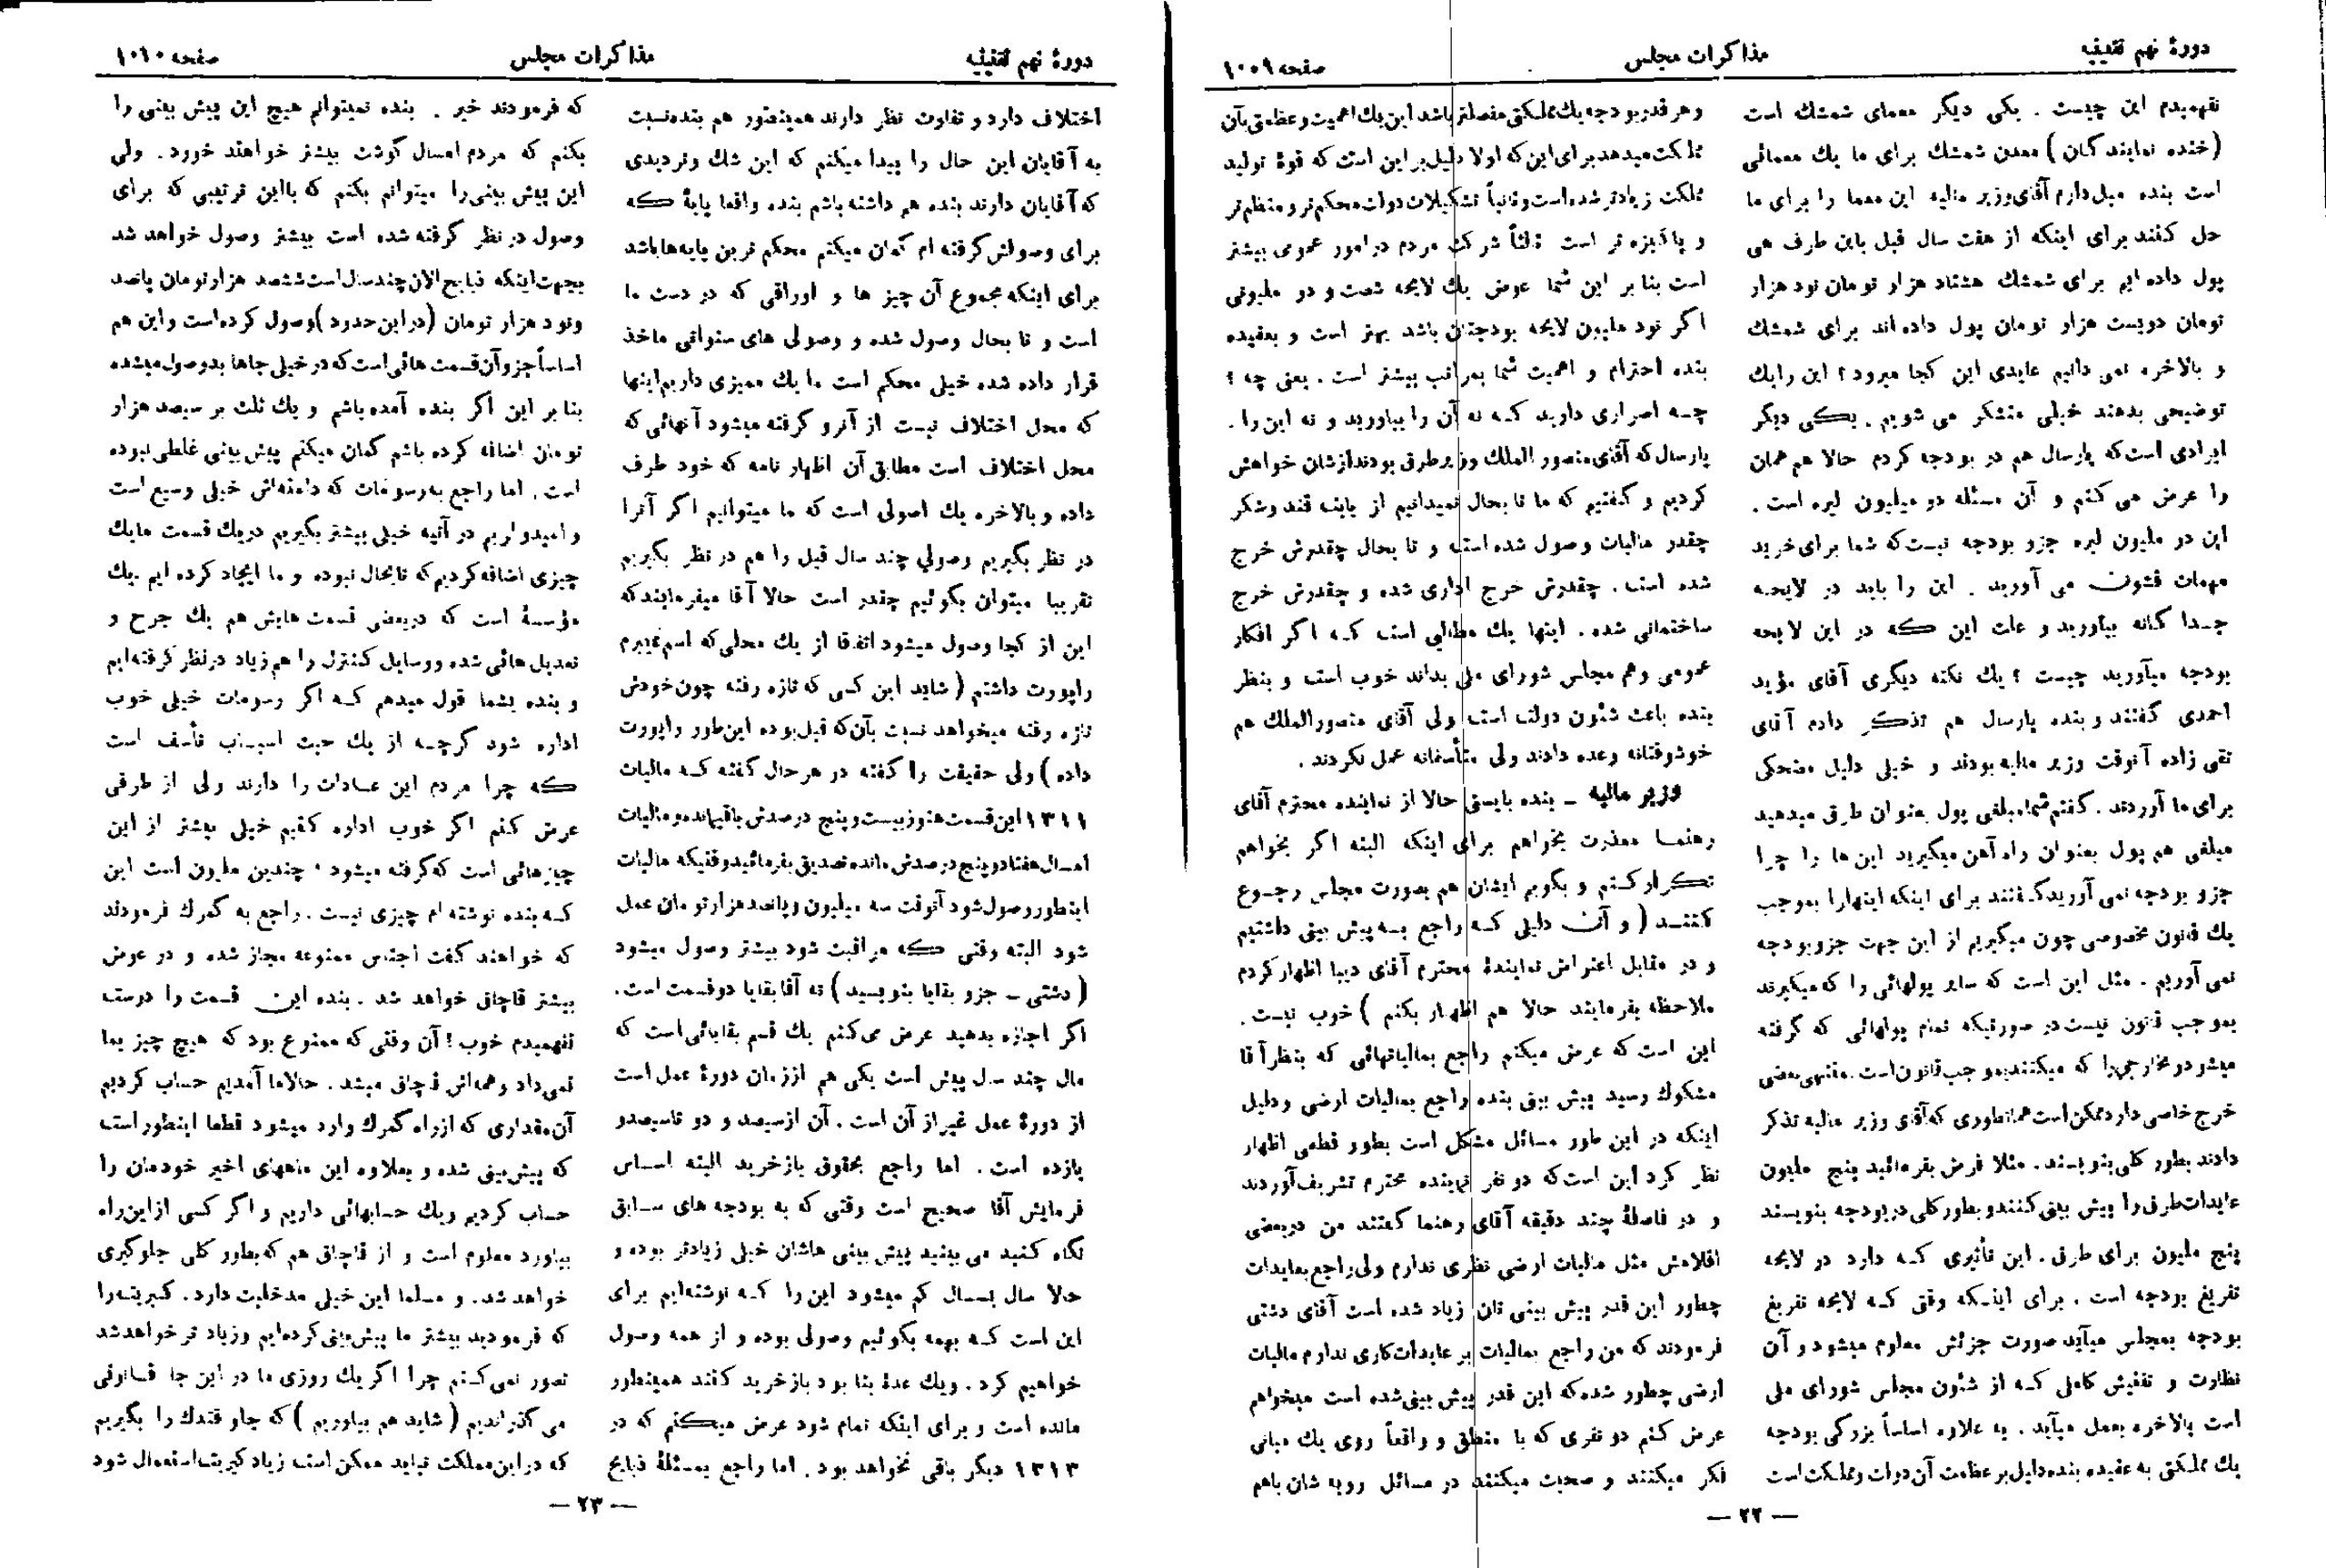 دورهٔ نهم تقنینیه
مذاکرات مجلس
صفحه ۱۰۰۹
نفهمیدم این چیست . یکی دیگر معمای شمشك است
(خنده نمایندگان) معدن شمشك برای ما یك معمائی
است بنده میل دارم آقای وزیر مالیه این معما را برای ما
حل کنند برای اینکه از هفت سال قبل باین طرف هی
پول داده ایم برای شمشك هشتاد هزار تومان نود هزار
تومان دویست هزار تومان پول داده اند برای شمشك
و بالاخره نمی دانیم عایدی این کجا میرود ؟ این را یك
توضیحی بدهند خیلی متشکر می شویم . یکی دیگر
ایرادی است که پارسال هم در بودجه کردم حالا هم همان
را عرض می کنم و آن مسئله دو میلیون لیره است .
این دو ملیون لیره جزو بودجه نیست که شما برای خرید
مهمات قشون می آورید . این را باید در لایحه
جدا گانه بیاورید و علت این که در این لایحه
بودجه میآورید چیست ؟ یك نکته دیگری آقای مؤید
احمدی گفتند و بنده پارسال هم تذکر دادم آقای
تقی زاده آنوقت وزیر مالیه بودند و خیلی دلیل مضحکی
برای ما آوردند . گفتم شما مبلغی پول بعنوان طرق میدهید
مبلغی هم پول بعنوان راه آهن میگیرید این ها را چرا
جزو بودجه نمی آورید گفتند برای اینکه اینها را بموجب
یك قانون مخصوصی چون میگیریم از این جهت جزو بودجه
نمی آوریم . مثل این است که سایر پولهائی را که میگیرند
بموجب قانون نیست در صورتیکه تمام پولهائی که گرفته
میشود و مخارجی را که میکنند بموجب قانون است . منتهی بعضی
خرج خاصی دارد ممکن است همانطوری که آقای وزیر مالیه تذکر
دادند بطور کلی بنویسند . مثلا فرض بفرمائید پنج ملیون
عایدات طرق را پیش بینی کنند و بطور کلی در بودجه بنویسند
پنج ملیون برای طرق . این تأثیری که دارد در لایحه
تفریغ بودجه است . برای اینکه وقتی که لایحه تفریغ
بودجه بمجلس میآید صورت جزئش معلوم میشود و آن
نظارت و تفتیش کاملی که از شئون مجلس شورای ملی
است بالاخره بعمل میآید . به علاوه اساساً بزرگی بودجه
یك مملکتی به عقیده بنده دلیل بر عظمت آن دولت و مملکت است
و هر قدر بودجه یك مملکتی مفصلتر باشد این یك اهمیت و عظمتی بآن
مملکت میدهد برای این که اولا دلیل بر این است که قوهٔ تولید
مملکت زیادتر شده است و ثانیاً تشکیلات دولت محکم تر و منظم تر
و پاکیزه تر است ثالثاً شرکت مردم در امور عمومی بیشتر
است بنا بر این شما عوض یك لایحه شصت و دو ملیونی
اگر نود ملیون لایحه بودجتان باشد بهتر است و بعقیده
بنده احترام و اهمیت شما بمراتب بیشتر است . یعنی چه ؟
چه اصراری دارید که نه آن را بیاورید و نه این را .
پارسال که آقای منصور الملك وزیر طرق بودند ازشان خواهش
کردیم و گفتیم که ما تا بحال نمیدانیم از بابت قند و شکر
چقدر مالیات وصول شده است و تا بحال چقدرش خرج
شده است . چقدرش خرج اداری شده و چقدرش خرج
ساختمانی شده . اینها یك مطالبی است که اگر افکار
عمومی و هم مجلس شورای ملی بداند خوب است و بنظر
بنده باعث شئون دولت است ولی آقای منصور الملك هم
خوشوقتانه وعده دادند ولی متأسفانه عمل نکردند .
وزیر مالیه ـ بنده بایستی حالا از نماینده محترم آقای
رهنما معذرت بخواهم برای اینکه البته اگر بخواهم
تکرار کنم و بگویم ایشان هم بصورت مجلس رجوع
کنند ( و آن دلیلی که راجع به پیش بینی داشتیم
و در مقابل اعتراض نمایندهٔ محترم آقای دیبا اظهار کردم
ملاحظه بفرمایند حالا هم اظهار بکنم ) خوب نیست .
این است که عرض میکنم راجع بمالیاتهائی که بنظر آقا
مشکوك رسید پیش بینی بنده راجع بمالیات ارضی و دلیل
اینکه در این طور مسائل مشکل است بطور قطعی اظهار
نظر کرد این است که دو نفر نماینده محترم تشریف آوردند
و در فاصلهٔ چند دقیقه آقای رهنما گفتند من در بعضی
اقلامش مثل مالیات ارضی نظری ندارم ولی راجع بعایدات
چطور این قدر پیش بینی تان زیاد شده است آقای دشتی
فرمودند که من راجع بمالیات بر عایدات کاری ندارم مالیات
ارضی چطور شده که این قدر پیش بینی شده است میخواهم
عرض کنم دو نفری که با منطق و واقعاً روی یك مبانی
فکر میکنند و صحبت میکنند در مسائل رویه شان باهم
— ۲۲ —
دورهٔ نهم تقنینیه
مذاکرات مجلس
صفحه ۱۰۱۰
اختلاف دارد و تفاوت نظر دارند همینطور هم بنده نسبت
به آقایان این حال را پیدا میکنم که این شك و تردیدی
که آقایان دارند بنده هم داشته باشم بنده واقعا پایهٔ که
برای وصولش گرفته ام گمان میکنم محکم ترین پایه ها باشد
برای اینکه مجموع آن چیز ها و اوراقی که در دست ما
است و تا بحال وصول شده و وصولی های سنواتی ماخذ
قرار داده شده خیلی محکم است ما یك ممیزی داریم اینها
که محل اختلاف نیست از آنرو گرفته میشود آنهائی که
محل اختلاف است مطابق آن اظهار نامه که خود طرف
داده و بالاخره یك اصولی است که ما میتوانیم اگر آنرا
در نظر بگیریم وصولی چند سال قبل را هم در نظر بگیریم
تقریبا میتوان بگوئیم چقدر است حالا آقا میفرمایند که
این از کجا وصول میشود اتفاقا از یك محلی که اسم نمیبرم
راپورت داشتم ( شاید این کسی که تازه رفته چون خودش
تازه رفته میخواهد نسبت بآن که قبل بوده این طور راپورت
داده ) ولی حقیقت را گفته در هر حال گفته که مالیات
۱۳۱۱ این قسمت هنوز بیست و پنج درصدش باقیمانده و مالیات
امسال هفتاد و پنج درصدش مانده تصدیق بفرمائید وقتیکه مالیات
اینطور وصول شود آنوقت سه میلیون و پانصد هزار تومان عمل
شود البته وقتی که مراقبت شود بیشتر وصول میشود
( دشتی ـ جزو بقایا بنویسید ) نه آقا بقایا دو قسمت است .
اگر اجازه بدهید عرض می کنم یك قسم بقایائی است که
مال چند سال پیش است یکی هم از زمان دورهٔ عمل است
از دورهٔ عمل غیر از آن است . آن از سیصد و دو تا سیصدو
یازده است . اما راجع بحقوق بازخرید البته اساس
فرمایش آقا صحیح است وقتی که به بودجه های سابق
نگاه کنید می بینید پیش بینی هاشان خیلی زیادتر بوده و
حالا سال بسال کم میشود این را که نوشته ایم برای
این است که بهمه بگوئیم وصولی بوده و از همه وصول
خواهیم کرد . و یك عدهٔ بنا بود بازخرید کنند همینطور
مانده است و برای اینکه تمام شود عرض میکنم که در
۱۳۱۳ دیگر باقی نخواهد بود . اما راجع بمسئلهٔ ذبایح
که فرمودند خیر . بنده نمیتوانم هیچ این پیش بینی را
بکنم که مردم امسال گوشت بیشتر خواهند خورد . ولی
این پیش بینی را میتوانم بکنم که بااین ترتیبی که برای
وصول در نظر گرفته شده است بیشتر وصول خواهد شد
بجهت اینکه ذبایح الان چند سال است ششصد هزار تومان پانصد
ونود هزار تومان (در این حدود) وصول کرده است و این هم
اساساً جزو آن قسمت هائی است که در خیلی جاها بد وصول میشده
بنا بر این اگر بنده آمده باشم و یك ثلث بر سیصد هزار
تومان اضافه کرده باشم گمان میکنم پیش بینی غلطی نبوده
است . اما راجع به رسومات که دامنه اش خیلی وسیع است
و امیدواریم در آتیه خیلی بیشتر بگیریم در یك قسمت ها یك
چیزی اضافه کردیم که تابحال نبوده و ما ایجاد کرده ایم . یك
مؤسسهٔ است که در بعضی قسمت هایش هم یك جرح و
تعدیل هائی شده و وسایل کنترل را هم زیاد در نظر گرفته ایم
و بنده بشما قول میدهم که اگر رسومات خیلی خوب
اداره شود گرچه از یك حیث اسباب تأسف است
که چرا مردم این عادات را دارند ولی از طرفی
عرض کنم اگر خوب اداره کنیم خیلی بیشتر از این
چیزهائی است که گرفته میشود . چندین ملیون است این
که بنده نوشته ام چیزی نیست . راجع به گمرك فرمودند
که خواهند گفت اجناس ممنوعه مجاز شده و در عوض
بیشتر قاچاق خواهد شد . بنده این قسمت را درست
نفهمیدم خوب ! آن وقتی که ممنوع بود که هیچ چیز بما
نمی داد و همه اش قاچاق میشد . حالا ما آمدیم حساب کردیم
آن مقداری که از راه گمرك وارد میشود قطعا اینطور است
که پیش بینی شده و بعلاوه این ماههای اخیر خودمان را
حساب کردیم و یك حسابهائی داریم و اگر کسی از این راه
بیاورد معلوم است و از قاچاق هم که بطور کلی جلوگیری
خواهد شد . و مسلما این خیلی مدخلیت دارد . کبریت را
که فرمودید بیشتر ما پیش بینی کرده ایم و زیاد تر خواهد شد
تصور نمی کنم چرا اگر یك روزی ما در این جا قانونی
می گذراندیم ( شاید هم بیاوریم ) که جلو فندك را بگیریم
که در این مملکت نیاید ممکن است زیاد کبریت استعمال شود
— ۲۳ —